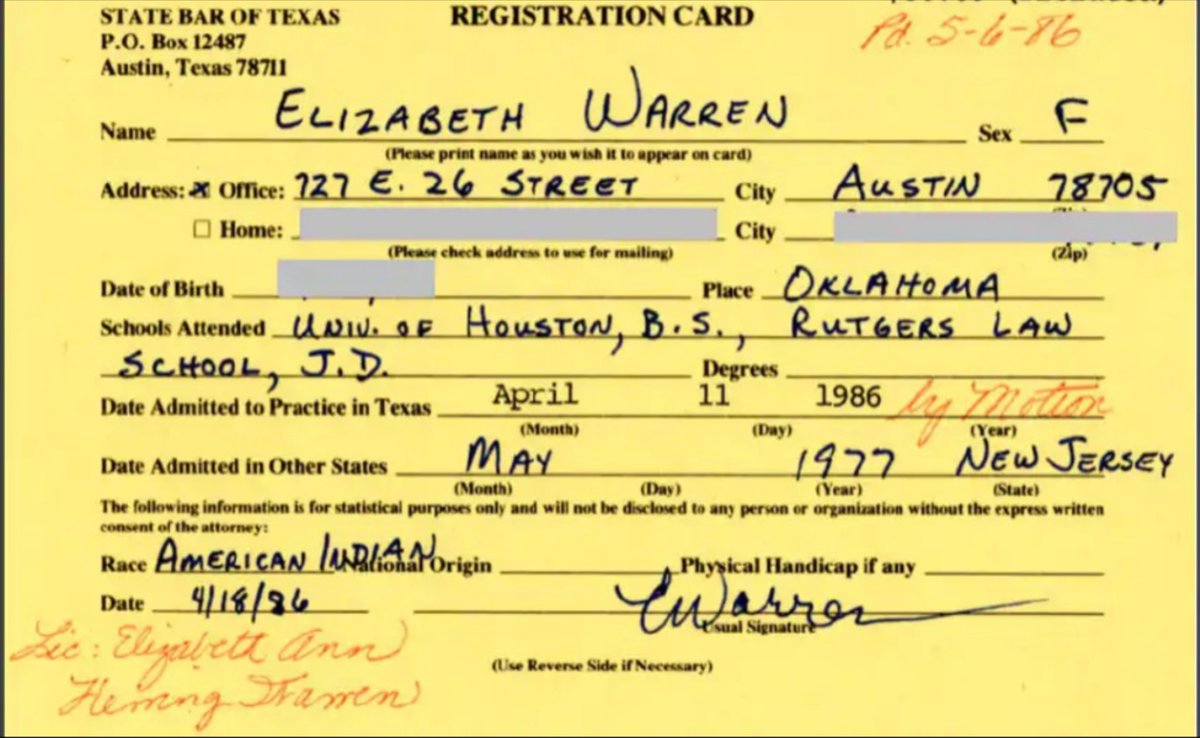 STATE BAR OF TEXAS
P.O. Box 12487
Austin, Texas 78711
REGISTRATION CARD
Pd. 5-6-86
Name ELIZABETH WARREN Sex F
(Please print name as you wish it to appear on card)
Address: x Office: 727 E. 26 STREET City AUSTIN 78705
☐ Home: City
(Please check address to use for mailing) (Zip)
Date of Birth Place OKLAHOMA
Schools Attended UNIV. OF HOUSTON, B.S., RUTGERS LAW
SCHOOL, J.D. Degrees
Date Admitted to Practice in Texas April 11 1986 by Motion
(Month) (Day) (Year)
Date Admitted in Other States MAY 1977 NEW JERSEY
(Month) (Day) (Year) (State)
The following information is for statistical purposes only and will not be disclosed to any person or organization without the express written
consent of the attorney:
Race AMERICAN INDIAN National Origin Physical Handicap if any
Date 4/18/86 EWarren
Usual Signature
Lic: Elizabeth Ann
Herring Warren
(Use Reverse Side if Necessary)